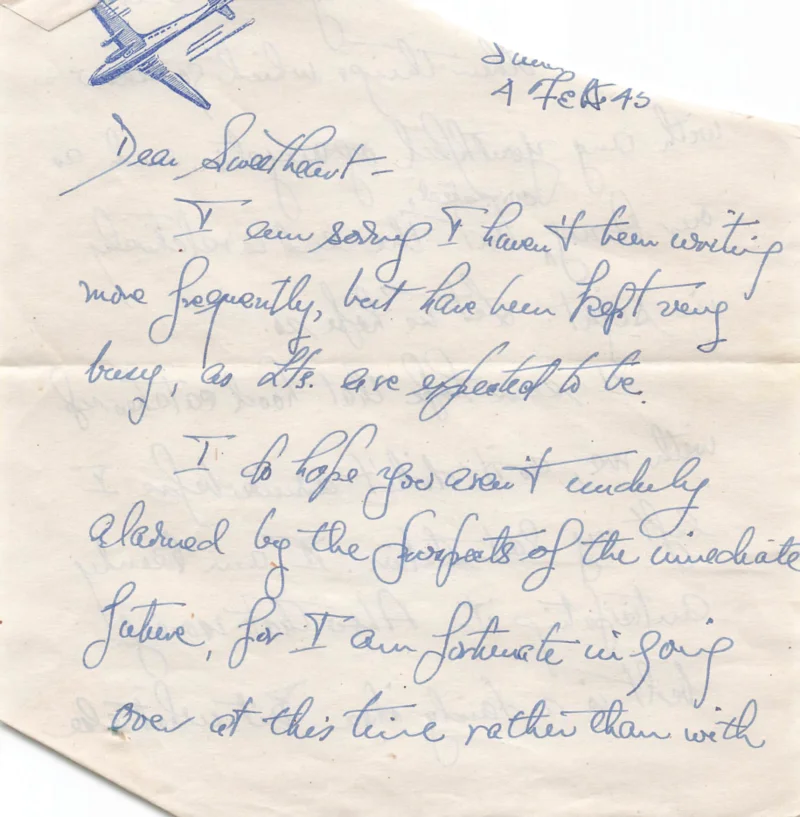 4 Feb 45
Dear Sweetheart–
I am sorry I haven't been writing
more frequently, but have been kept very
busy, as Lts. are expected to be.
I do hope you aren't unduly
alarmed by the prospects of the immediate
future, for I am fortunate in going
over at this time rather than with